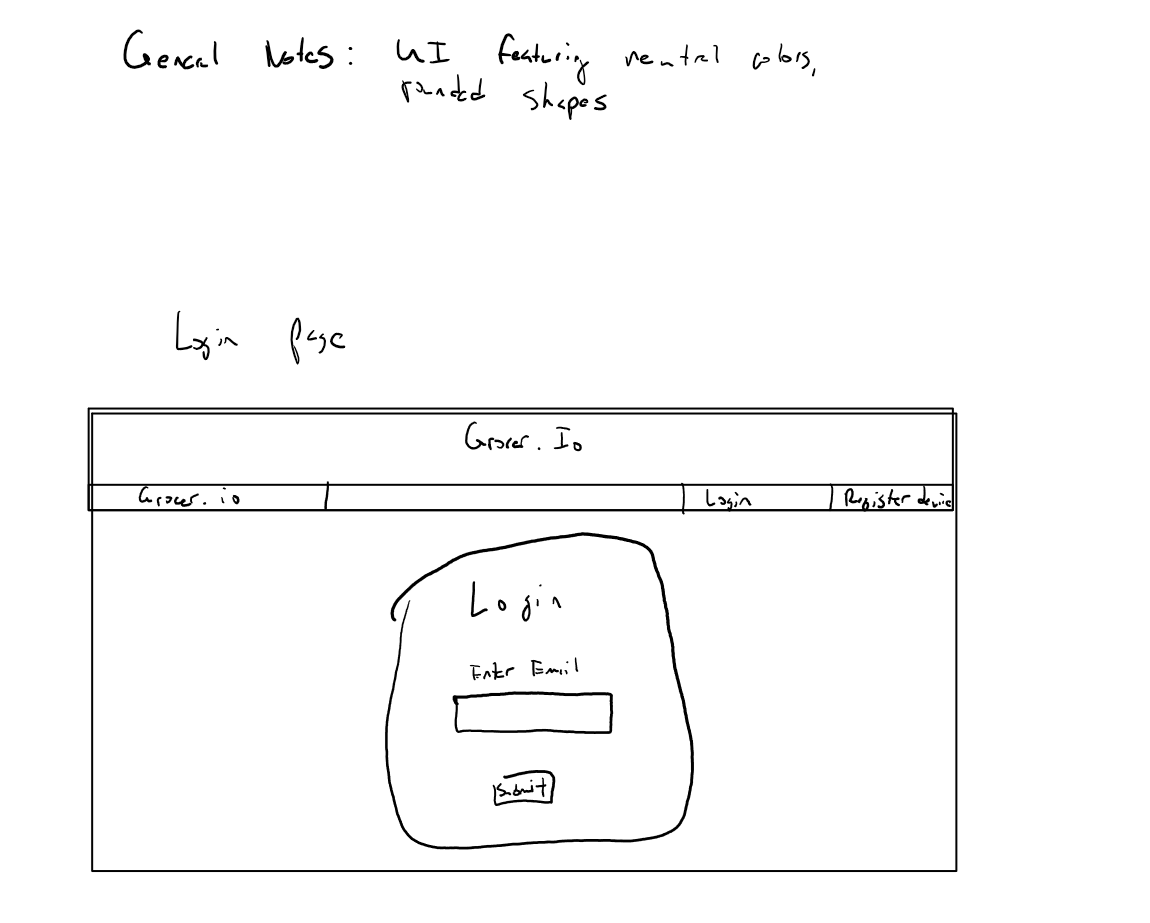 General Notes: UI featuring neutral colors,
rounded shapes
Login page
Grocer.Io
Grocer.io Login Register device
Login
Enter Email
Submit